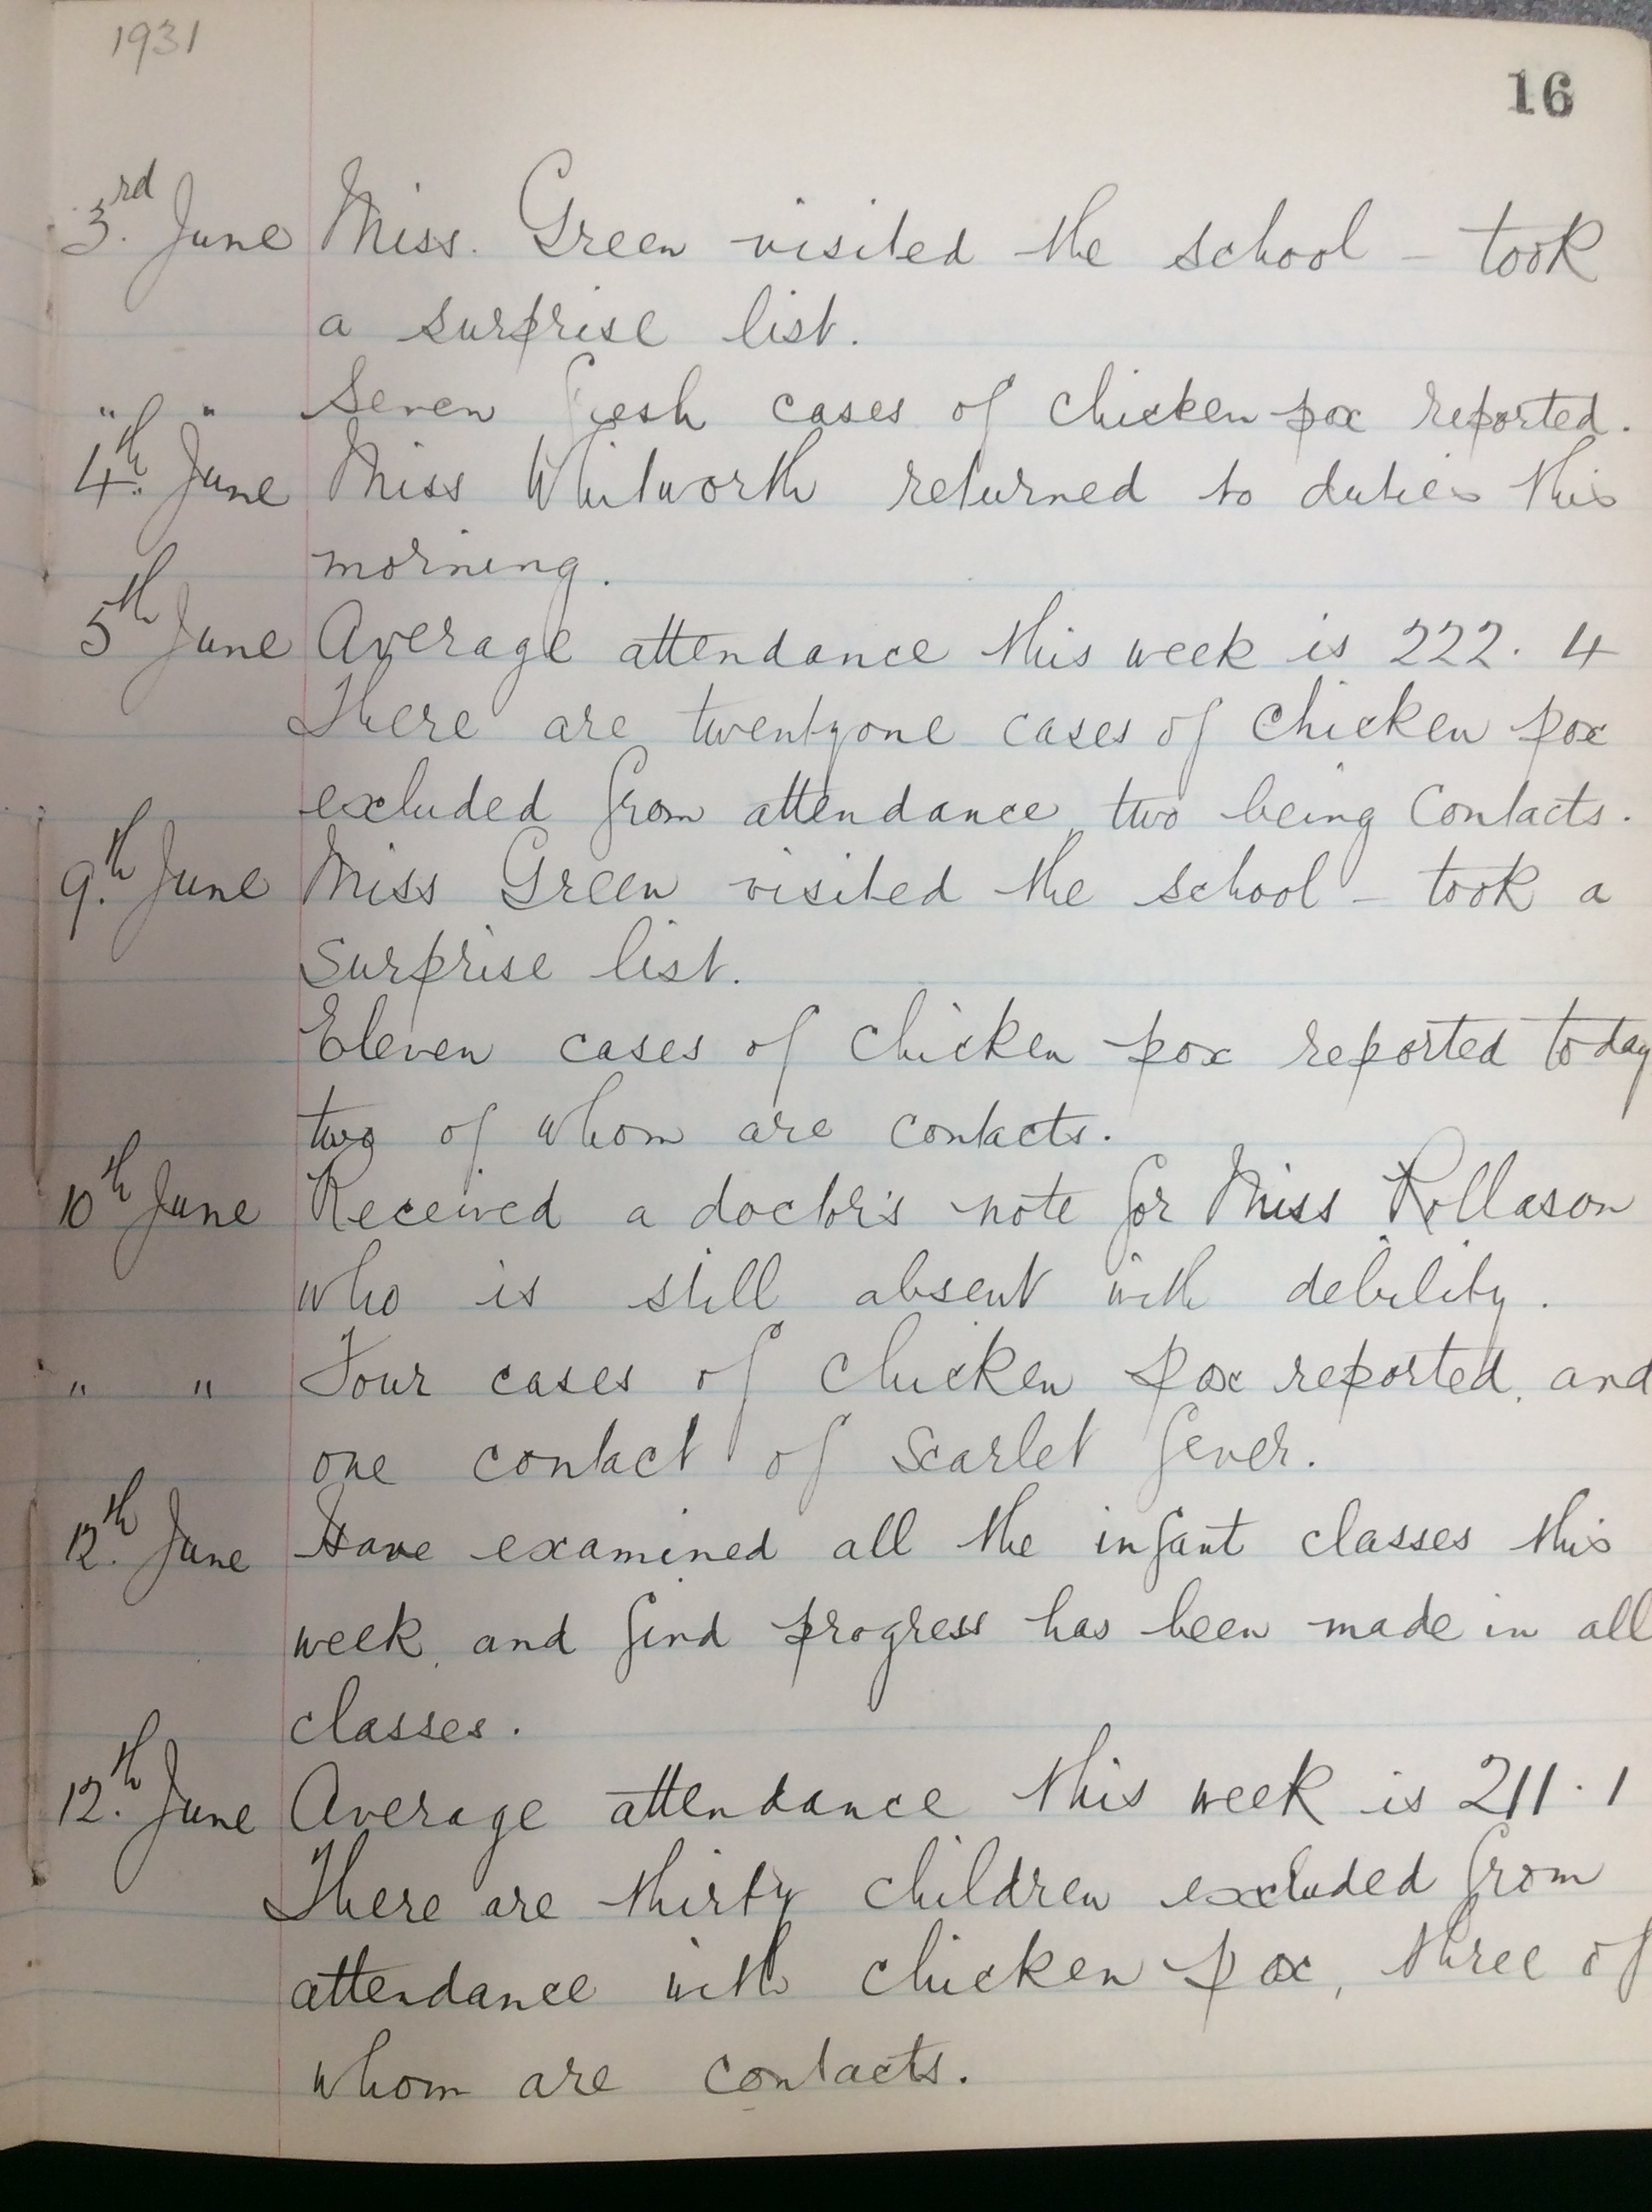 1931
16
3rd. June Miss. Green visited the school – took
a surprise list.
" " Seven fresh cases of chicken pox reported.
4th. June Miss Whitworth returned to duties this
morning.
5th June Average attendance this week is 222.4
There are twentyone cases of chicken pox
excluded from attendance, two being contacts.
9th. June Miss Green visited the school – took a
surprise list.
Eleven cases of chicken pox reported today
two of whom are contacts.
10th June Received a doctor's note for Miss Rollason
who is still absent with debility.
" " Four cases of chicken pox reported, and
one contact of scarlet fever.
12th. June Have examined all the infant classes this
week, and find progress has been made in all
classes.
12th. June Average attendance this week is 211.1
There are thirty children excluded from
attendance with chicken pox, three of
whom are contacts.